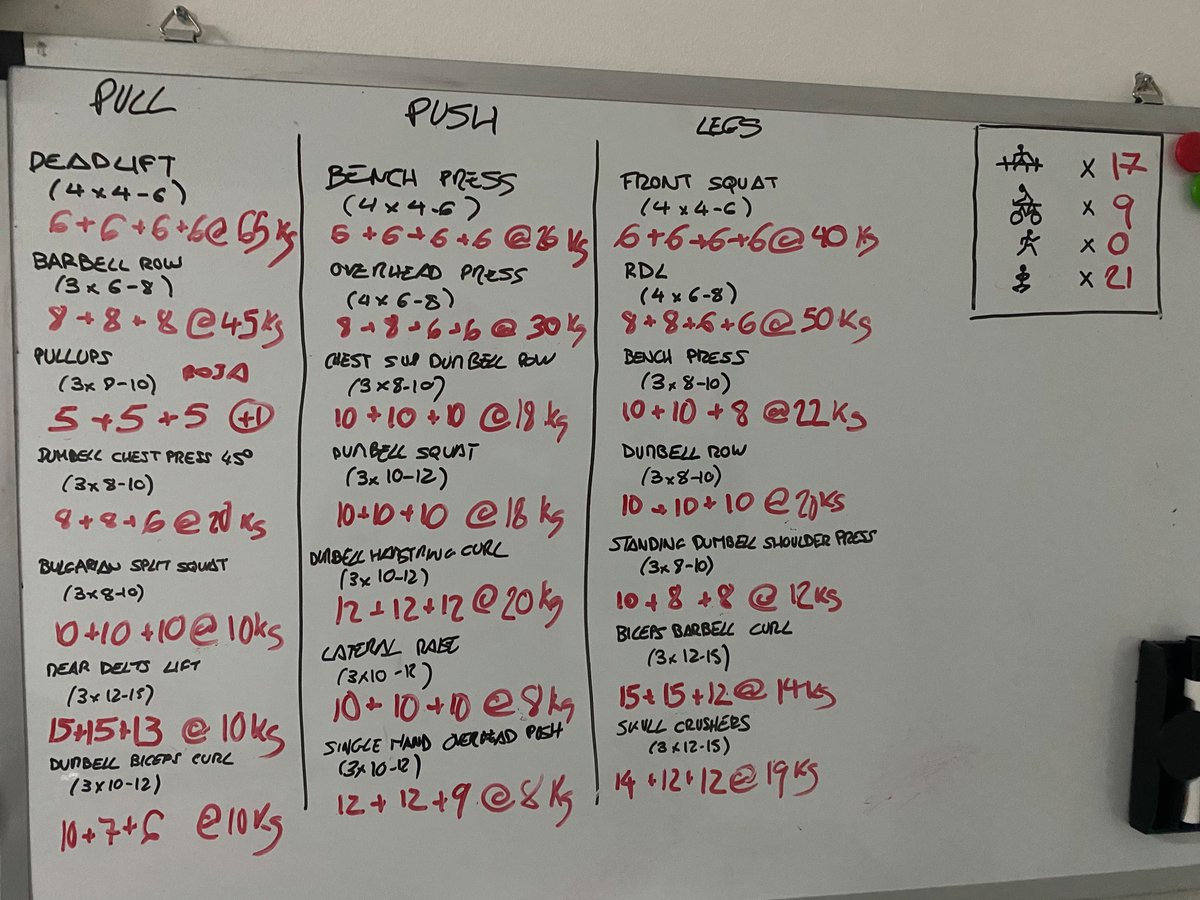 PULL
DEADLIFT
(4x4-6)
6+6+6+6@65Kg
BARBELL ROW
(3x6-8)
8+8+8@45Kg
PULLUPS
(3x8-10) ROJA
5+5+5 +1
DUMBELL CHEST PRESS 45°
(3x8-10)
8+8+6@20Kg
BULGARIAN SPLIT SQUAT
(3x8-10)
10+10+10@10Kg
REAR DELTS LIFT
(3x12-15)
15+15+13 @ 10Kg
DUMBELL BICEPS CURL
(3x10-12)
10+7+6 @10Kg
PUSH
BENCH PRESS
(4x4-6)
6+6+6+6 @26Kg
OVERHEAD PRESS
(4x6-8)
8+8+6+6 @ 30Kg
CHEST SUP DUMBELL ROW
(3x8-10)
10+10+10 @18Kg
DUMBELL SQUAT
(3x10-12)
10+10+10 @18Kg
DUMBELL HAMSTRING CURL
(3x10-12)
12+12+12@20Kg
LATERAL RAISE
(3x10-12)
10+10+10@8Kg
SINGLE HAND OVERHEAD PUSH
(3x10-12)
12+12+9@8Kg
LEGS
FRONT SQUAT
(4x4-6)
6+6+6+6@40Kg
RDL
(4x6-8)
8+8+6+6@50Kg
BENCH PRESS
(3x8-10)
10+10+8@22Kg
DUMBELL ROW
(3x8-10)
10+10+10@20Kg
STANDING DUMBELL SHOULDER PRESS
(3x8-10)
10+8+8@12Kg
BICEPS BARBELL CURL
(3x12-15)
15+15+12@14Kg
SKULL CRUSHERS
(3x12-15)
14+12+12@19Kg
x 17
x 9
x 0
x 21